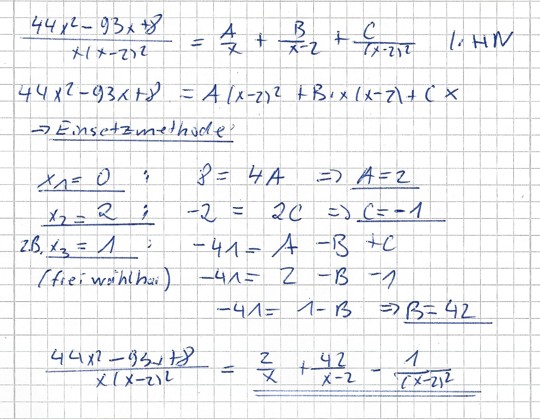 (44x² − 93x + 8)/(x(x−2)²) = A/x + B/(x−2) + C/(x−2)² |· HN
44x² − 93x + 8 = A(x−2)² + B·x(x−2) + Cx
⇒ Einsetzmethode:
x₁ = 0 : 8 = 4A ⇒ A = 2
x₂ = 2 : −2 = 2C ⇒ C = −1
z.B. x₃ = 1 : −41 = A − B + C
(frei wählbar) −41 = 2 − B − 1
−41 = 1 − B ⇒ B = 42
(44x² − 93x + 8)/(x(x−2)²) = 2/x + 42/(x−2) − 1/(x−2)²